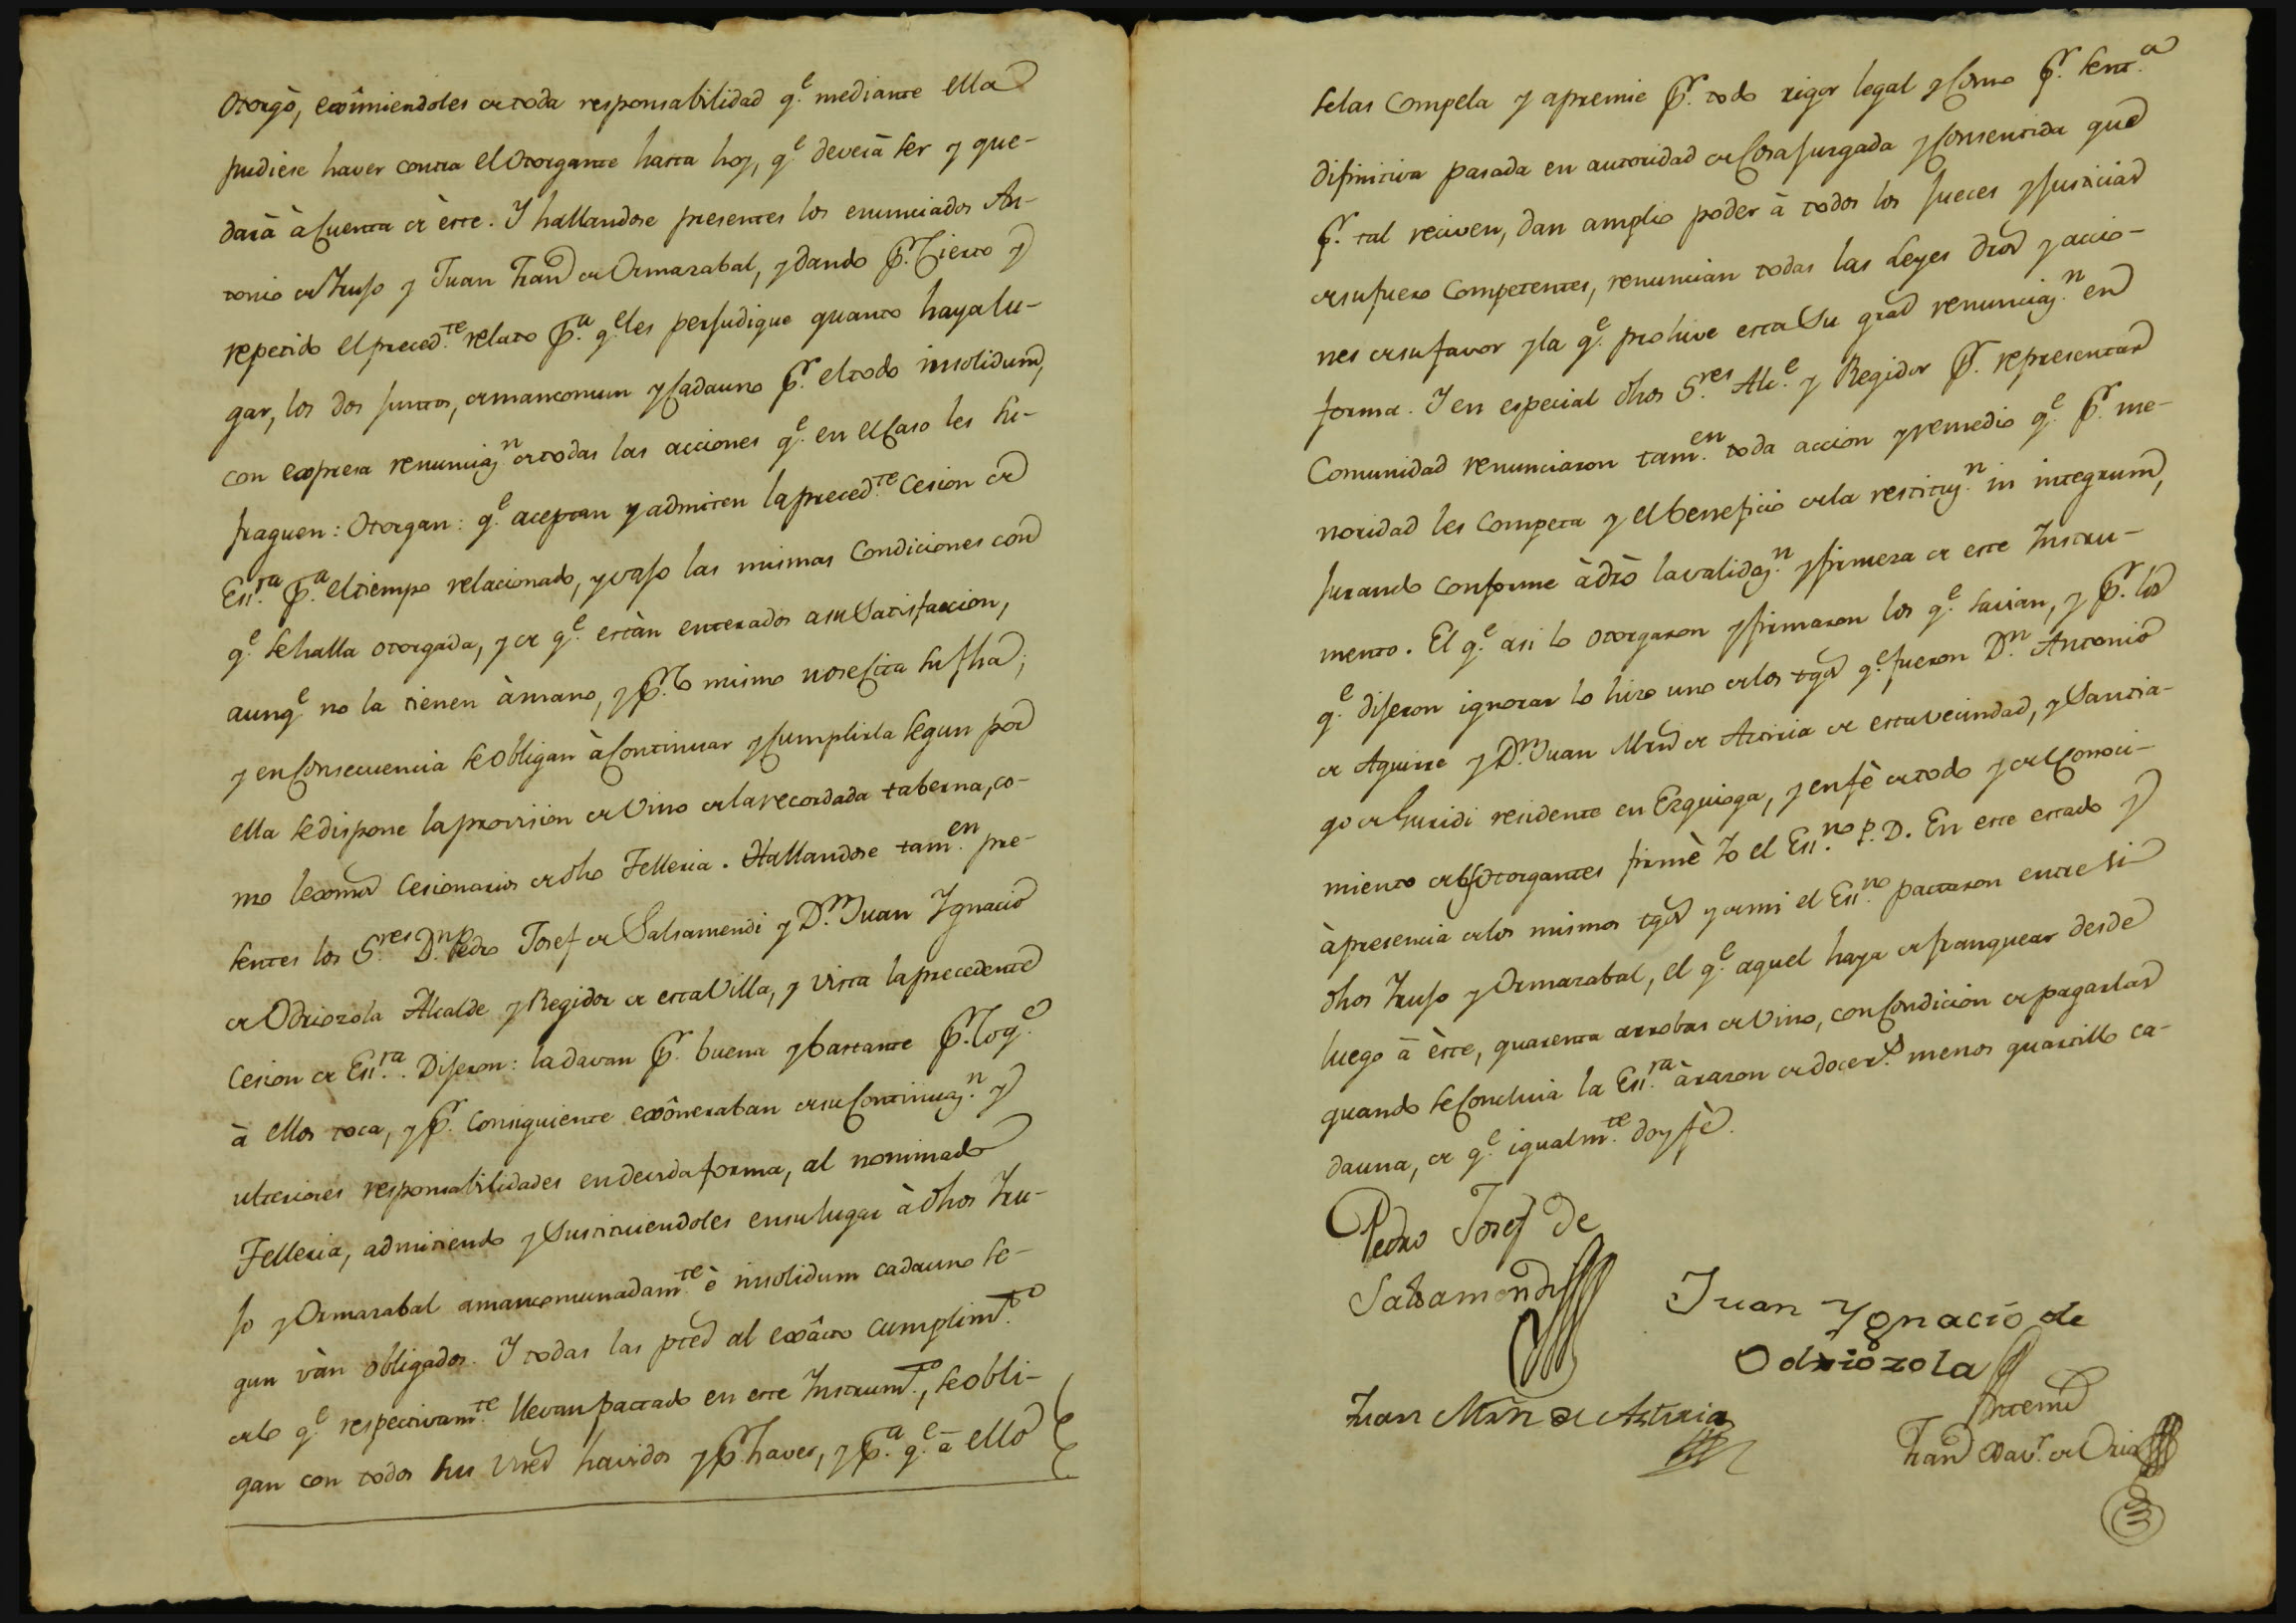 Otorgò, exîmiendoles de toda responsabilidad q.e mediante ella
pudiese haver contra el Otorgante hasta hoy, q.e deverà ser y que-
darà à Cuenta de èste. Y hallandose presentes los enunciados An-
tonio de Trujo y Juan Fran.co de Ormazabal, y dando p.r Cierto y
repetido el preced.te relato p.a q.e les perjudique quanto haya lu-
gar, los dos juntos, de mancomun y Cada uno p.r el todo insolidum,
con expresa renunciaz.n de todas las acciones q.e en el Caso les su-
fraguen: Otorgan: q.e aceptan y admiten la preced.te Cesion de
Ess.ra p.a el tiempo relacionado, y vajo las mismas Condiciones con
q.e se halla otorgada, y de q.e estàn enterados a su Satisfaccion,
aunq.e no la tienen à mano, y p.r lo mismo no se Cita su fha;
y en Consecuencia se obligan à Continuar y Cumplirla segun por
ella se dispone la provision de Vino de la recordada taberna, co-
mo lexmos Cesionarios de dho Telleria. Hallandose tam.en pre-
sentes los S.res D.n Pedro Josef de Salsamendi y D.n Juan Ygnacio
de Odriozola Alcalde y Regidor de esta Villa, y vista la precedente
Cesion de Ess.ra. Dijeron: la davan p.r buena y bastante p.r lo q.e
à ellos toca, y p.r Consiguiente exôneraban de su Continuaz.n y
ulteriores responsabilidades en devida forma, al nominado
Telleria, admitiendo y Sustituiendoles en su lugar à dhos Tru-
jo y Ormazabal a mancomunadam.te è insolidum cada uno se-
gun vàn obligados. Y todas las ptes al exâcto cumplim.to
de lo q.e respectivam.te llevan pactado en este Instrum.to, se obli-
gan con todos sus vnes havidos y p.r haver, y p.a q.e à ello
se las Compela y apremie p.r todo rigor legal y Como p.r Sent.a
difinitiva pasada en autoridad de Cosa Juzgada y Consentida que
p.r tal reciven, dan amplio poder à todos los Jueces y Justicias
de su fuero Competentes, renuncian todas las Leyes dros y accio-
nes de su favor y la q.e prohive esta Su gral renunciaz.n en
forma. Y en especial dhos S.res Alc.e y Regidor p.r representar
Comunidad renunciaron tam.en toda accion y remedio q.e p.r me-
noridad les Competa y el beneficio de la restituz.n in integrum,
Jurando conforme à dro la validaz.n y firmeza de este Instru-
mento. El q.e asi lo otorgaron y firmaron los q.e savian, y p.r los
q.e dijeron ignorar lo hizo uno de los tgos q.e fueron D.n Antonio
de Aguirre y D.n Juan Mrn de Asturia de esta vecindad, y Santia-
go de Guridi residente en Ezquioga, y en fè de todo y de el Conoci-
miento de los Otorgantes firmè Yo el Ess.no P.D. En este estado y
à presencia de los mismos tgos y de mi el Ess.no pactaron entre si
dhos Trujo y Ormazabal, el q.e aquel haya de franquear desde
luego à èste, quarenta arrobas de Vino, con Condicion de pagarlas
quando se Concluia la Ess.ra à razon de doce r.s menos quartillo ca-
da una, de q.e igualm.te doy fè.
Pedro Josef de
Salsamendi
Juan Ygnacio de
Odriozola
Juan Mrn de Asturia
Antemi
Fran.co Xav.r de Oria